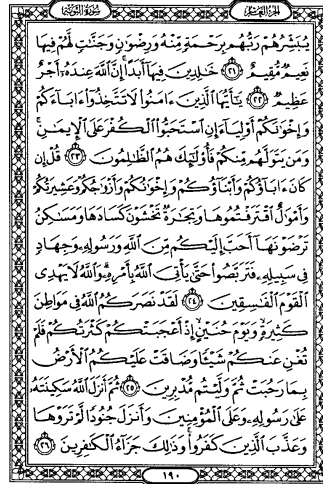 الجزء العاشر سورة التوبة
يُبَشِّرُهُمْ رَبُّهُم بِرَحْمَةٍ مِّنْهُ وَرِضْوَانٍ وَجَنَّاتٍ لَّهُمْ فِيهَا
نَعِيمٌ مُّقِيمٌ ٢١ خَالِدِينَ فِيهَا أَبَدًا إِنَّ اللَّهَ عِندَهُ أَجْرٌ
عَظِيمٌ ٢٢ يَا أَيُّهَا الَّذِينَ ءَامَنُوا لَا تَتَّخِذُوا ءَابَاءَكُمْ
وَإِخْوَانَكُمْ أَوْلِيَاءَ إِنِ اسْتَحَبُّوا الْكُفْرَ عَلَى الْإِيمَانِ
وَمَن يَتَوَلَّهُم مِّنكُمْ فَأُولَٰئِكَ هُمُ الظَّالِمُونَ ٢٣ قُلْ إِن
كَانَ ءَابَاؤُكُمْ وَأَبْنَاؤُكُمْ وَإِخْوَانُكُمْ وَأَزْوَاجُكُمْ وَعَشِيرَتُكُمْ
وَأَمْوَالٌ اقْتَرَفْتُمُوهَا وَتِجَارَةٌ تَخْشَوْنَ كَسَادَهَا وَمَسَاكِنُ
تَرْضَوْنَهَا أَحَبَّ إِلَيْكُم مِّنَ اللَّهِ وَرَسُولِهِ وَجِهَادٍ
فِي سَبِيلِهِ فَتَرَبَّصُوا حَتَّىٰ يَأْتِيَ اللَّهُ بِأَمْرِهِ وَاللَّهُ لَا يَهْدِي
الْقَوْمَ الْفَاسِقِينَ ٢٤ لَقَدْ نَصَرَكُمُ اللَّهُ فِي مَوَاطِنَ
كَثِيرَةٍ وَيَوْمَ حُنَيْنٍ إِذْ أَعْجَبَتْكُمْ كَثْرَتُكُمْ فَلَمْ
تُغْنِ عَنكُمْ شَيْئًا وَضَاقَتْ عَلَيْكُمُ الْأَرْضُ
بِمَا رَحُبَتْ ثُمَّ وَلَّيْتُم مُّدْبِرِينَ ٢٥ ثُمَّ أَنزَلَ اللَّهُ سَكِينَتَهُ
عَلَىٰ رَسُولِهِ وَعَلَى الْمُؤْمِنِينَ وَأَنزَلَ جُنُودًا لَّمْ تَرَوْهَا
وَعَذَّبَ الَّذِينَ كَفَرُوا وَذَٰلِكَ جَزَاءُ الْكَافِرِينَ ٢٦
١٩٠